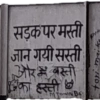 सड़क पर मस्ती
जान गयी सस्ती
और न बस्ती
हस्ती